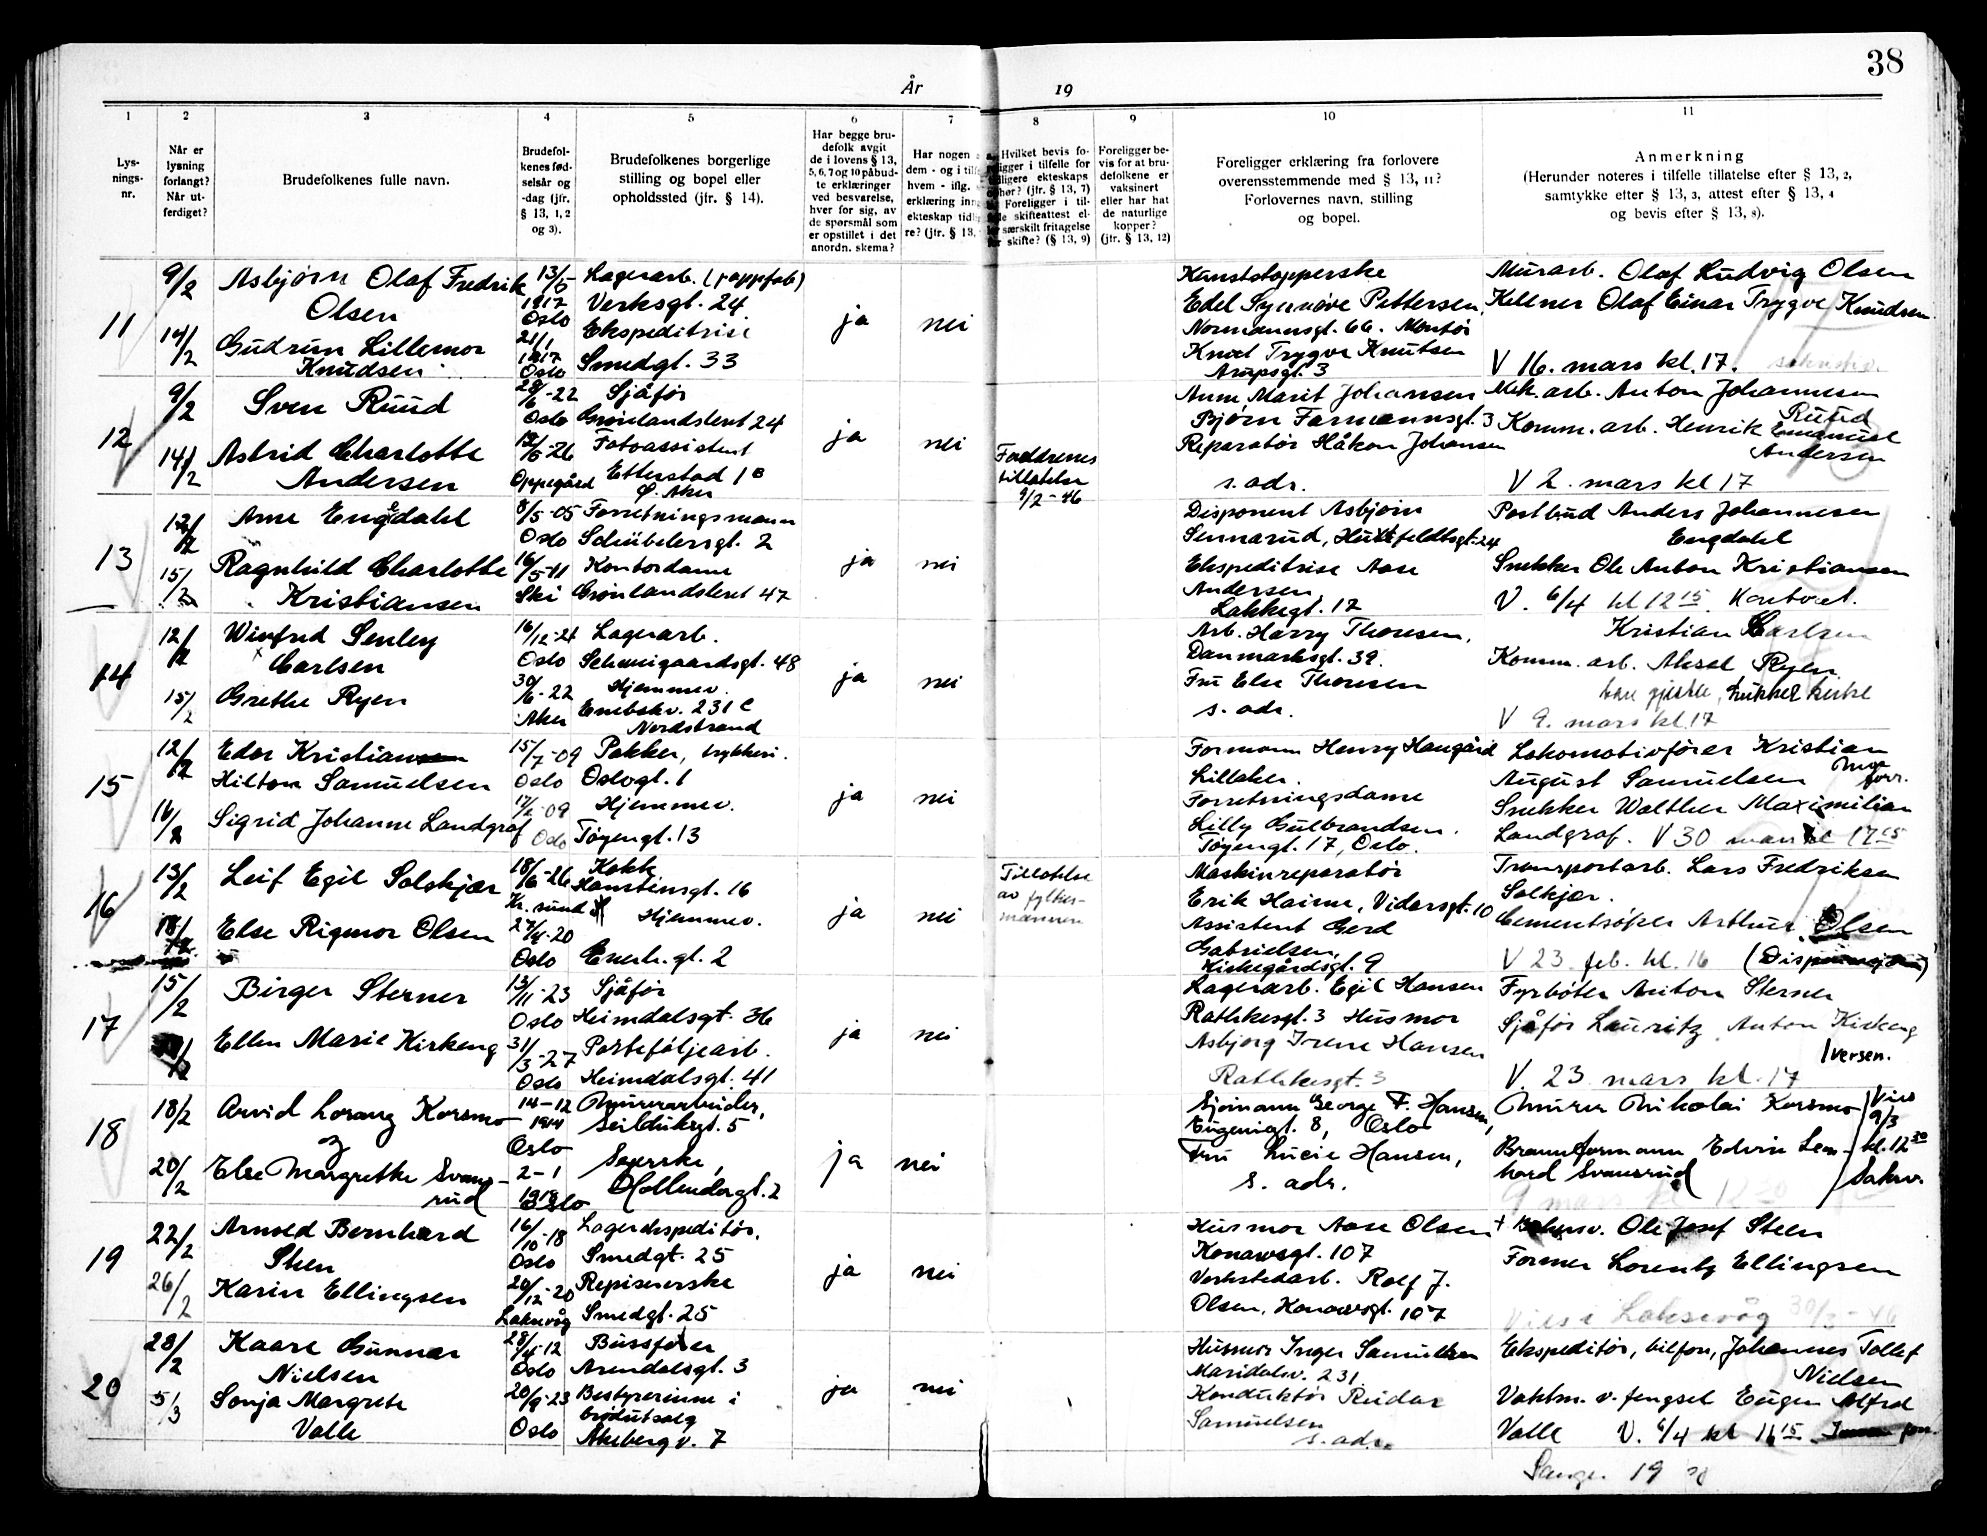 38
År 19
1 2 3 4 5 6 7 8 9 10 11
Lys-
nings-
nr.
Når er
lysning
forlangt?
Når ut-
ferdiget?
Brudefolkenes fulle navn.
Brudefol-
kenes fød-
selsår og
-dag (jfr.
§ 13, 1, 2
og 3).
Brudefolkenes borgerlige
stilling og bopel eller
opholdssted (jfr. § 14).
Har begge bru-
defolk avgit
de i lovens § 13,
5, 6, 7 og 10 påbud-
te erklæringer
ved besvarelse,
hver for sig, av
de spørsmål som
er opstillet i det
anordn. skema?
Har nogen
dem - og i
hvem - iflg.
erklæring
ekteskap
re? (jfr. § 13,
Hvilket bevis fo-
religger i tilfelle for
ekteskaps
(jfr. § 13, 7)
Foreligger i til-
skifteattest el-
særskilt fritagelse
skifte? (§ 13, 9)
Foreligger be-
vis for at bru-
defolkene er
vaksinert
eller har hat
de naturlige
kopper?
(jfr. § 13, 12)
Foreligger erklæring fra forlovere
overensstemmende med § 13, 11?
Forlovernes navn, stilling
og bopel.
Anmerkning
(Herunder noteres i tilfelle tillatelse efter § 13, 2,
samtykke efter § 13, 3, attest efter § 13, 4
og bevis efter § 13, 8).
11
9/2
14/2
Asbjørn Olaf Fredrik
Olsen
Gudrun Lillemor
Knudsen
13/5
1917
Oslo
21/1
1917
Oslo
Lagerarb. (pappfab)
Verksgt. 24
Ekspeditrise
Smedgt. 33
ja
nei
Kunststopperske
Edel Synnøve Pettersen,
Normannsgt. 66. Montør
Knut Trygve Knutsen
Arupsgt. 3
Murarb. Olaf Ludvig Olsen
Kellner Olaf Einar Trygve Knudsen
V 16. mars kl. 17.
12
9/2
14/2
Sven Ruud
Astrid Charlotte
Andersen
28/6-22
Oslo
-26
Oppegård
Sjåfør
Grønlandsleret 24
Fotoassistent
Etterstad 1B
Ø. Aker
ja
nei
Foreldrenes
tillatelse
9/2-46
Anne Marit Johansen
Bjørn Farmannsgt. 3
Reparatør Håkon Johansen
s. adr.
Mek. arb. Anton Johannesen
Ruud
Komm. arb. Henrik Emanuel
Andersen
V 2. mars kl 17
13
12/2
15/2
Arne Engdahl
Ragnhild Charlotte
Kristiansen
8/5-05
Oslo
16/5-11
Ski
Forretningsmann
Schübelersgt. 2
Kontordame
Grønlandsleret 47
ja
nei
Disponent Asbjørn
Sennerud, Huitfeldtsgt. 24
Ekspeditrise Aase
Andersen,
Lakkegt. 12
Postbud Anders Johannesen
Engdahl
Snekker Ole Anton Kristiansen
V. 6/4 kl 12 15. Kontoret.
14
12/2
15/2
Winfred Senley
Carlsen
Grethe Ryen
16/12-21
Oslo
30/6-22
Aker
Lagerarb.
Schweigaardsgt. 48
Hjemmev.
Enebakv. 231 C
Nordstrand
ja
nei
Arb. Harry Thoresen,
Danmarksgt. 39.
Fru Else Thoresen
s. adr.
Kristian Carlsen
Komm. arb. Aksel Ryen
lukket kirke
V 9. mars kl 17
15
12/2
16/2
Edor Kristian
Hilton Samuelsen
Sigrid Johanne Landgraf
15/7-09
Oslo
-09
Oslo
Pakker, trykkeri.
Oslogt. 1
Hjemmev.
Tøyengt. 13
ja
nei
Formann Henry Haugård
Lilleaker.
Forretningsdame
Lilly Gulbrandsen.
Tøyengt. 17, Oslo.
Lokomotivfører Kristian
August Samuelsen
Snekker Walther Maximilian
Landgraf. V 30 mars kl 17 15
16
13/2
18/2
Leif Egil Solskjær
Else Rigmor Olsen
18/6-26
Kr. sund N
27/4-20
Oslo
Kokk
Hanstinsgt. 16
Hjemmev.
Enerh.gt. 2
ja
nei
Tillatelse
av fylkes-
mannen
Maskinreparatør
Erik Heime, Vidarsgt. 10
Assistent Gerd
Gabrielsen,
Kirkegårdsgt. 9
Transportarb. Lars Fredriksen
Solkjær.
Cementstøper Arthur Olsen
V 23. feb. kl. 16
17
15/2
Birger Sterner
Ellen Marie Kirkeng
13/11-23
Oslo
31/3-27
Oslo
Sjåfør
Heimdalsgt. 36
Porteføljearb.
Heimdalsgt. 41
ja
nei
Lagerarb. Egil Hansen
Rathkesgt. 3 Husmor
Asbjørg Irene Hansen
Rathkesgt. 3
Fyrbøter Anton Sterner
Sjåfør Lauritz Anton Kirkeng
Iversen.
V. 23 mars kl. 17
18
18/2
20/2
Arvid Lorang Korsmo
og
Else Margrethe Svens-
rud
14-12
1914
Oslo
2-1
1918
Oslo
Murerarbeider,
Seilduksgt. 5
Syerske,
Hollendergt. 2
ja
nei
Sjømann George F. Hansen,
Eugeniegt. 8, Oslo
Fru Lucie Hansen,
s. adr.
Murer Nikolai Korsmo
Brannformann Edvin Leon-
hard Svensrud
Vies
9/3
kl. 12 30
Sakr.
19
22/2
26/2
Arnold Bernhard
Steen
Karin Ellingsen
16/10-18
Oslo
20/12-20
Laksevåg
Lagerekspeditør.
Smedgt. 25
Repiserske
Smedgt. 25
ja
nei
Husmor Aase Olsen
Konowsgt. 107
Verkstedarb. Rolf J.
Olsen, Konowsgt. 107
Ole Josef Steen
Former Lorentz Ellingsen
Vies i Laksevåg
20
28/2
5/3
Kaare Gunnar
Nielsen
Sonja Margrete
Valle
28/4-12
Oslo
20/9-23
Oslo
Bussfører
Arendalsgt. 3
Bestyrerinne i
brødutsalg
Åkebergv. 7
ja
nei
Husmor Inger Samuelsen
Maridalsv. 231
Konduktør Reidar
Samuelsen
s. adr.
Ekspeditør, bilforr., Johannes Tollef
Nielsen
Vaktm. v. fengsel Eugen Alfred
Valle V. 6/4 kl 16 15